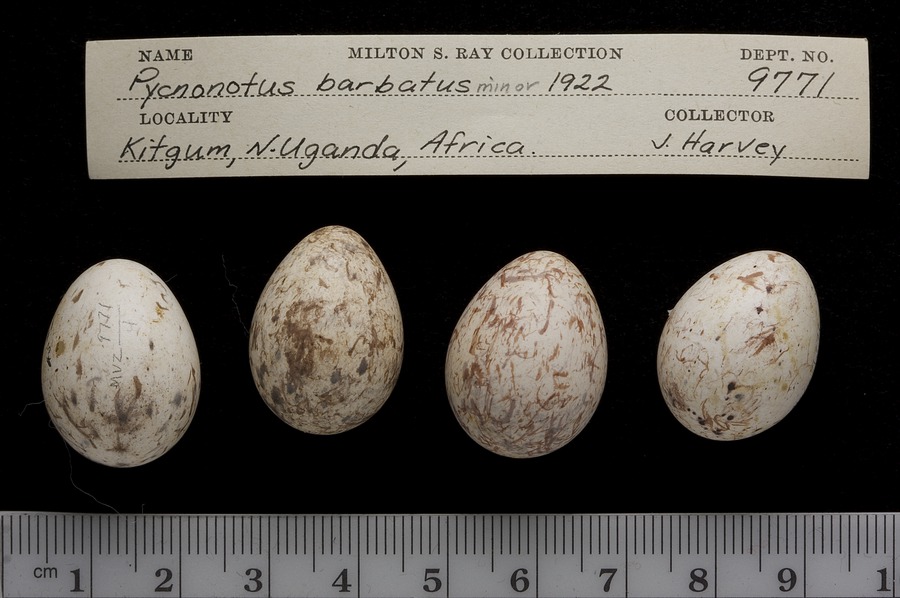 NAME MILTON S. RAY COLLECTION DEPT. NO.
Pycnonotus barbatus minor 1922 9771
LOCALITY COLLECTOR
Kitgum, N. Uganda, Africa. J. Harvey
MVZ 9771
4
cm 1 2 3 4 5 6 7 8 9 1